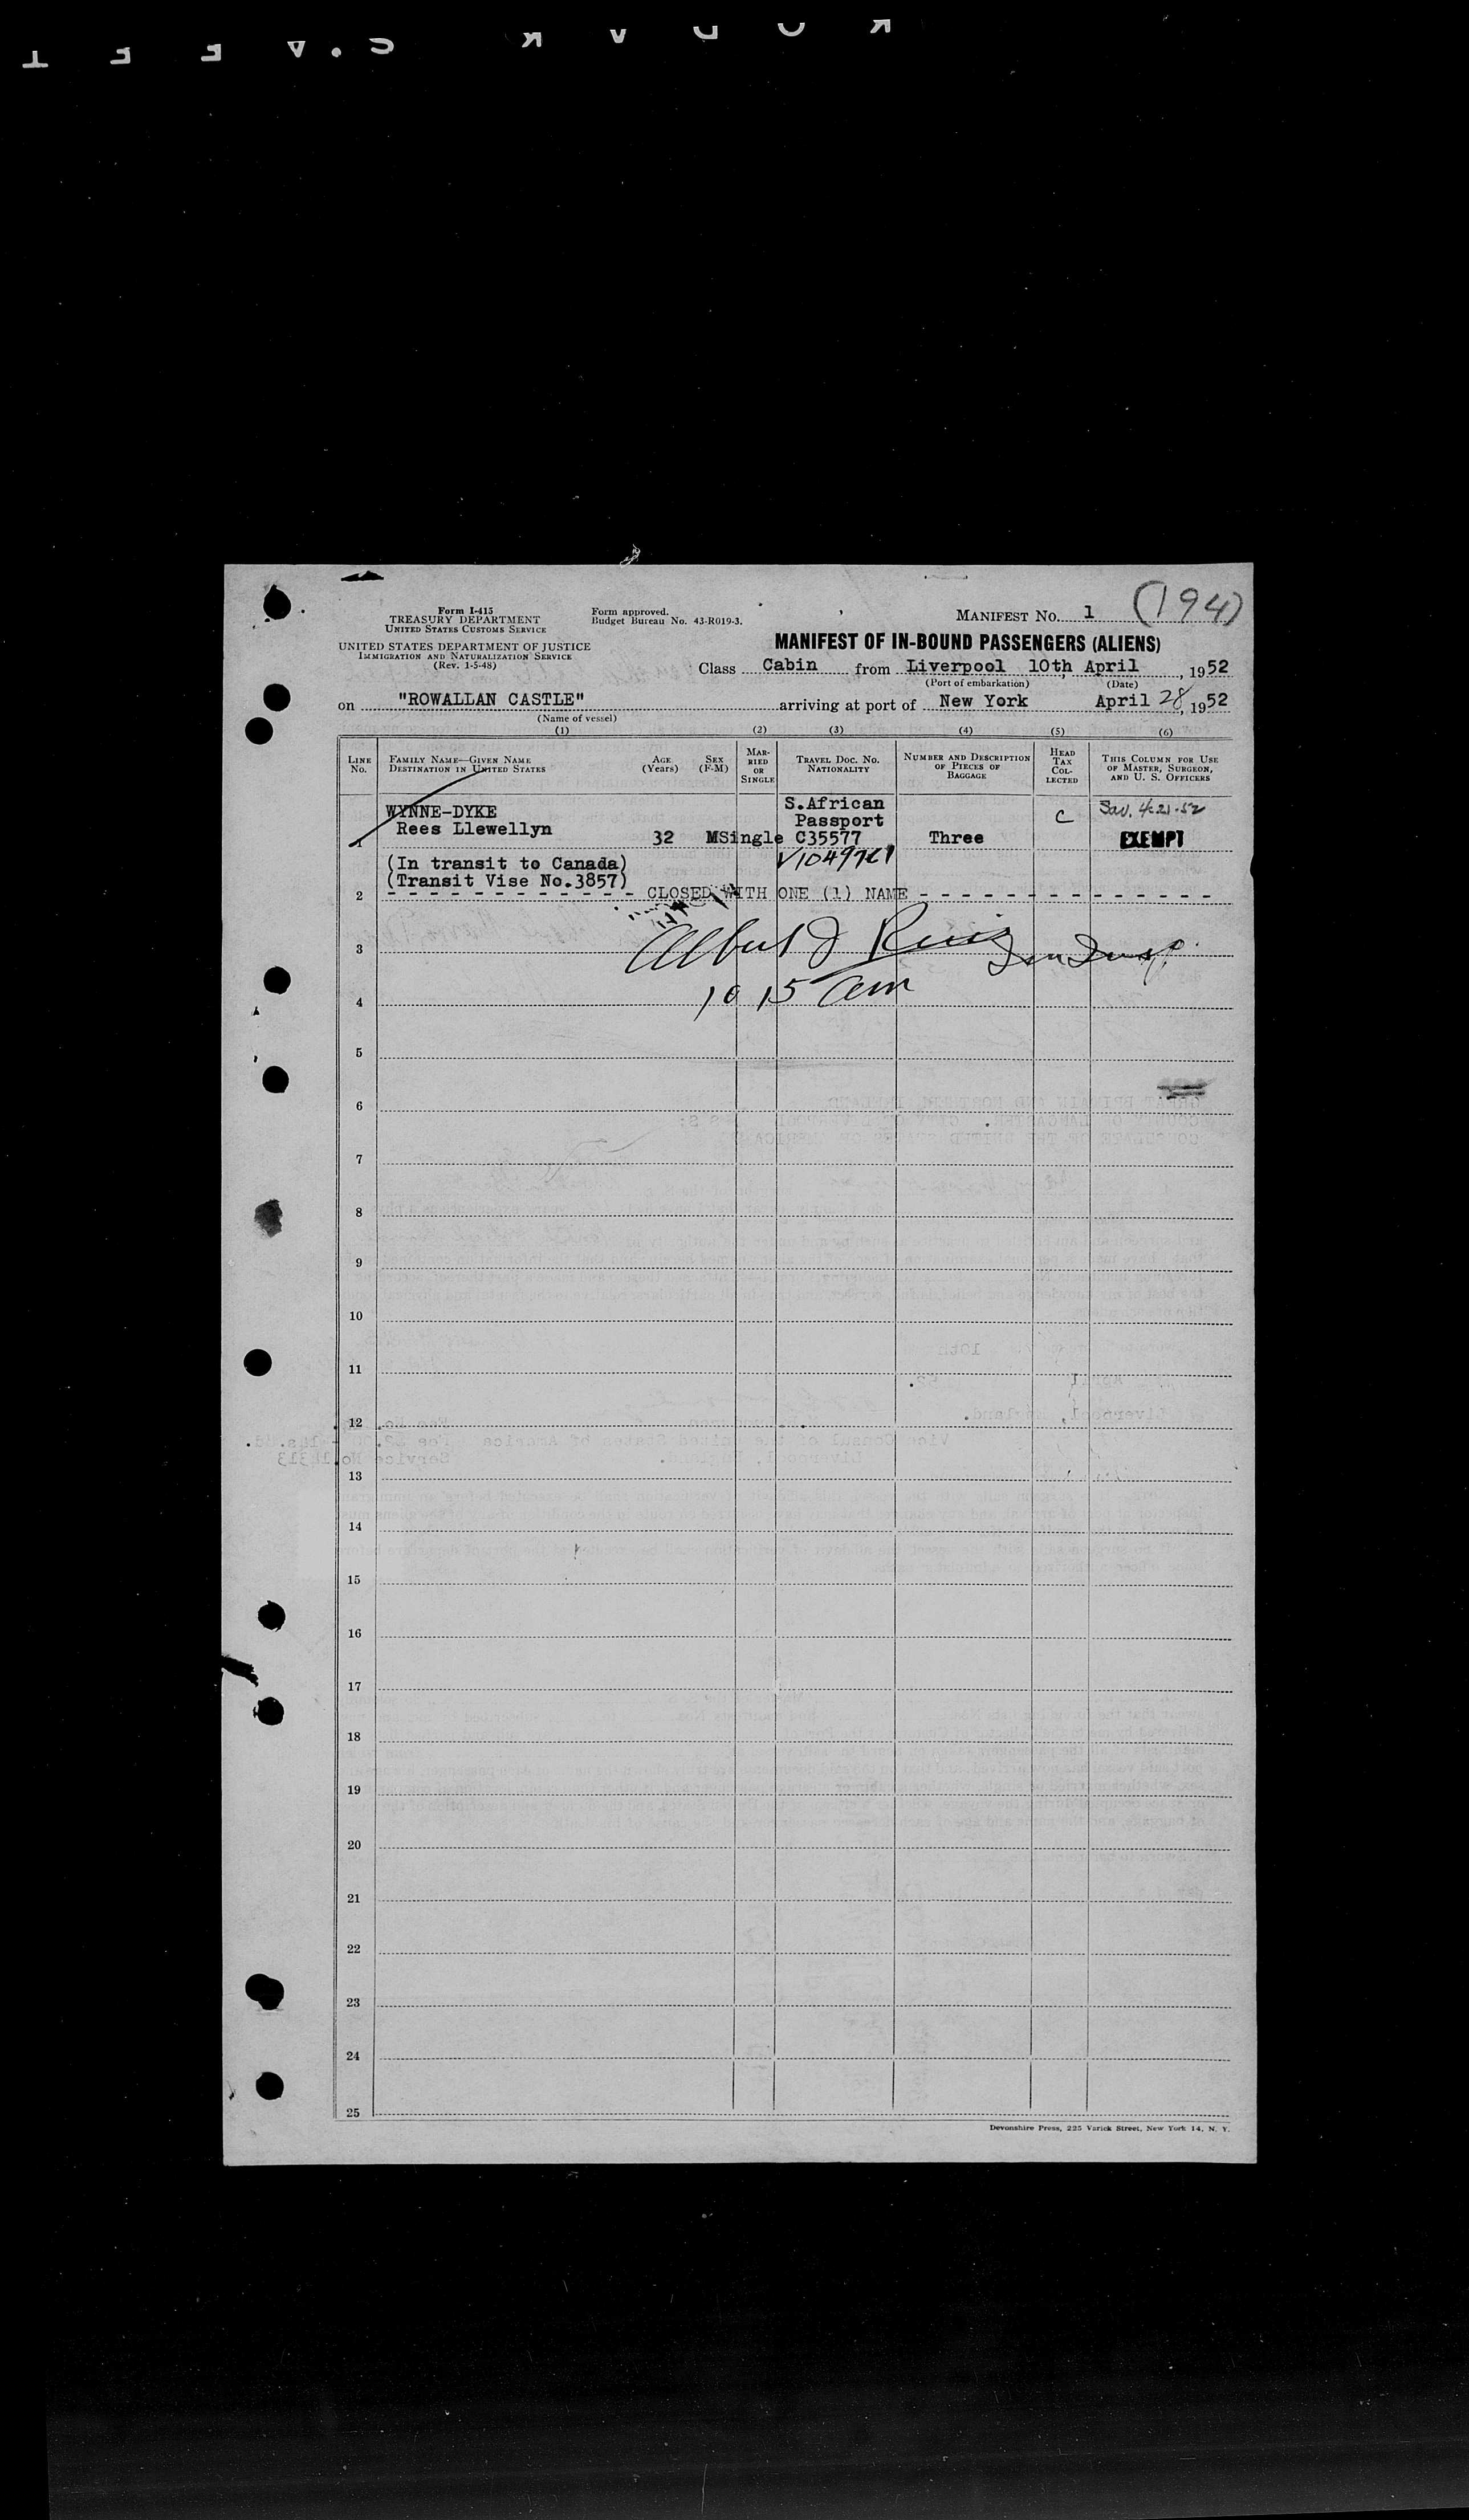 Form I-415
TREASURY DEPARTMENT
UNITED STATES CUSTOMS SERVICE
UNITED STATES DEPARTMENT OF JUSTICE
IMMIGRATION AND NATURALIZATION SERVICE
(Rev. 1-5-48)
Form approved.
Budget Bureau No. 43-R019-3.
MANIFEST NO. 1 (194)
MANIFEST OF IN-BOUND PASSENGERS (ALIENS)
Class Cabin from Liverpool 10th, April, 1952
(Port of embarkation) (Date)
on "ROWALLAN CASTLE" arriving at port of New York April 28, 1952
(Name of vessel)
(1) (2) (3) (4) (5) (6)
LINE No. FAMILY NAME—GIVEN NAME DESTINATION IN UNITED STATES AGE (Years) SEX (F-M) MARRIED OR SINGLE TRAVEL DOC. NO. NATIONALITY NUMBER AND DESCRIPTION OF PIECES OF BAGGAGE HEAD TAX COLLECTED THIS COLUMN FOR USE OF MASTER, SURGEON, AND U. S. OFFICERS
WYNNE-DYKE S.African
Rees Llewellyn Passport C
1 32 M Single C35577 Three EXEMPT
(In transit to Canada)
(Transit Vise No.3857)
2 - - - - - - - - - - - - CLOSED WITH ONE (1) NAME - - - - - - - - - - - - - -
3 Albert J
4 10 15 am
5
6
7
8
9
10
11
12
13
14
15
16
17
18
19
20
21
22
23
24
25
Devonshire Press, 225 Varick Street, New York 14, N. Y.